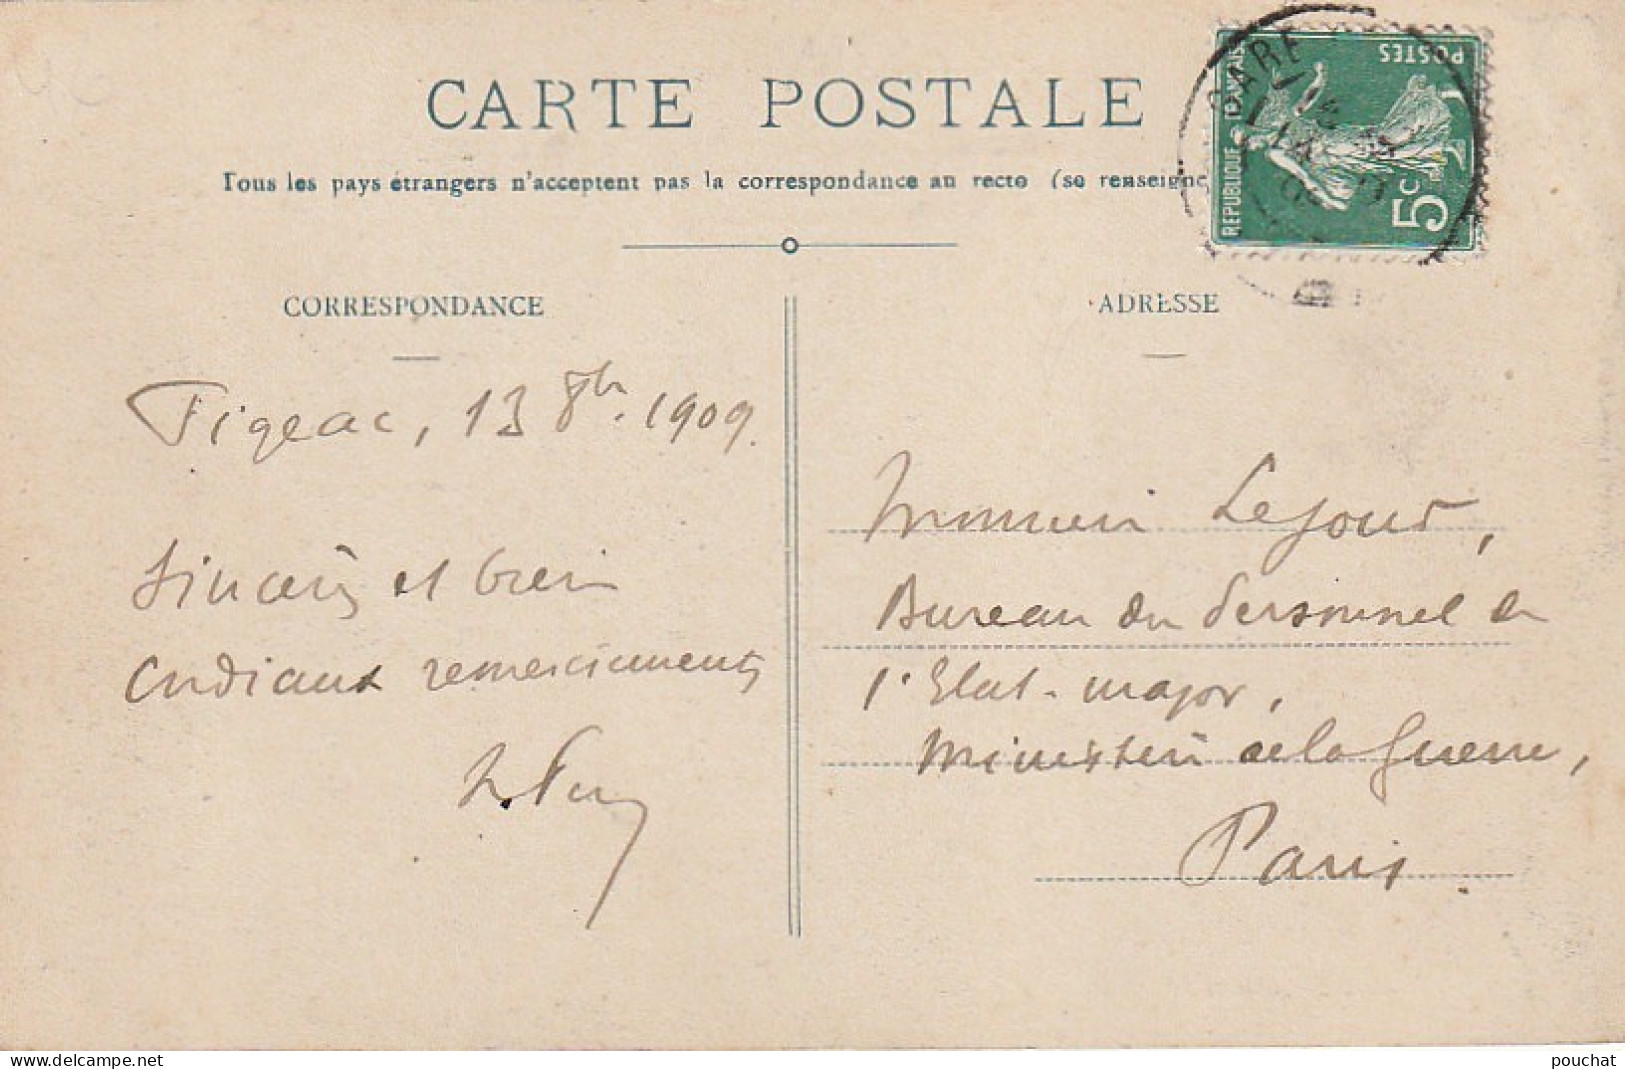 CARTE POSTALE
Tous les pays étrangers n'acceptent pas la correspondance au recto (se renseigne
REPUBLIQUE FRANÇAISE
POSTES
5c
GARE
CORRESPONDANCE
ADRESSE
Figeac, 13 8bre 1909.
Sincères et bien
cordiaux remerciements
Monsieur Lejour,
Bureau du Personnel de
l'Etat-major,
Ministère de la Guerre,
Paris.
www.delcampe.net
pouchat